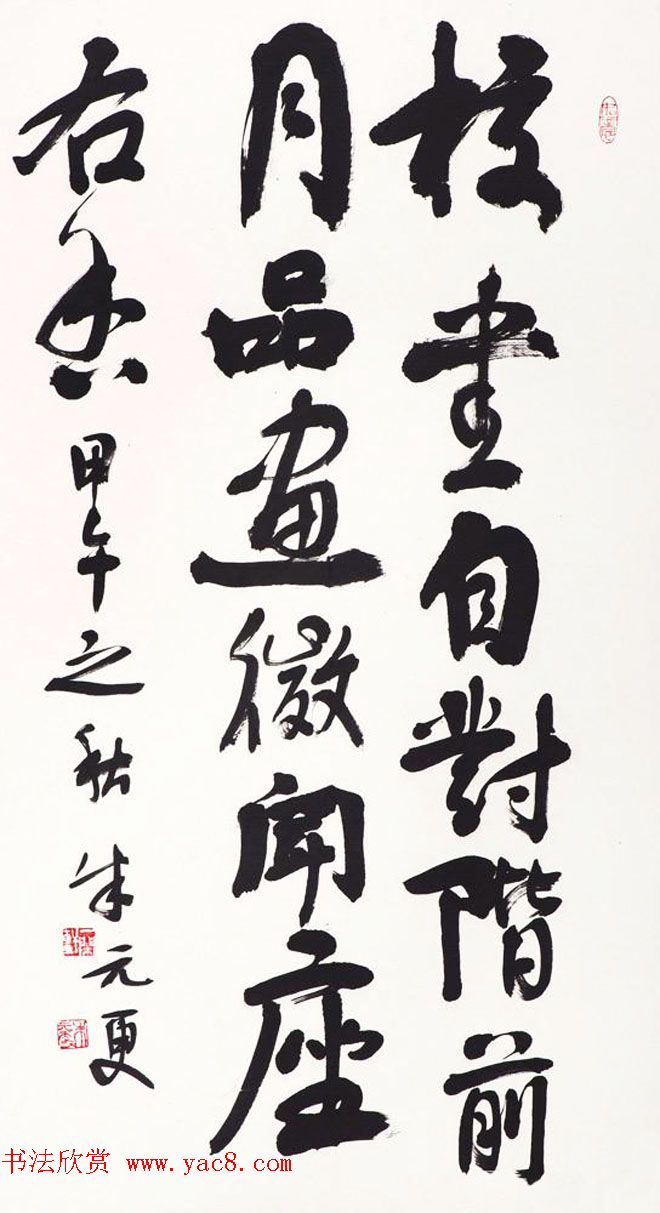 校書自對階前
月品畫微聞座
右香甲午之秋朱元更
书法欣赏 www.yac8.com